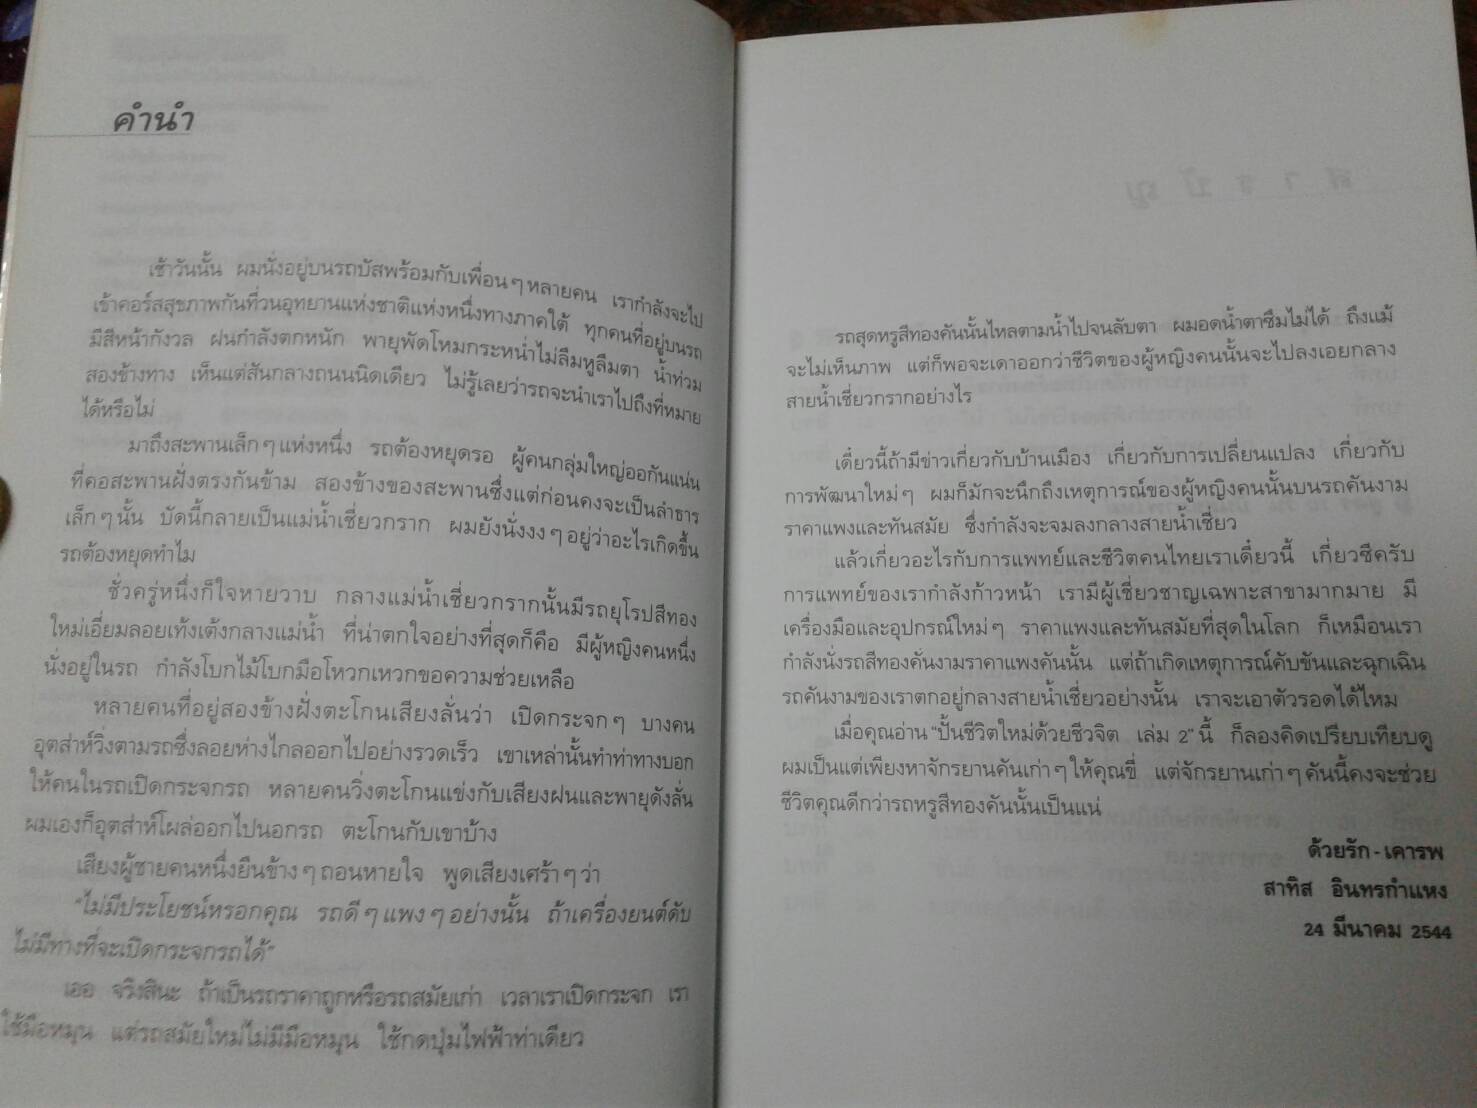 คำนำ
เช้าวันนั้น ผมนั่งอยู่บนรถบัสพร้อมกับเพื่อนๆหลายคน เรากำลังจะไป
เข้าคอร์สสุขภาพกันที่วนอุทยานแห่งชาติแห่งหนึ่งทางภาคใต้ ทุกคนที่อยู่บนรถ
มีสีหน้ากังวล ฝนกำลังตกหนัก พายุพัดโหมกระหน่ำไม่ลืมหูลืมตา น้ำท่วม
สองข้างทาง เห็นแต่สันกลางถนนนิดเดียว ไม่รู้เลยว่ารถจะนำเราไปถึงที่หมาย
ได้หรือไม่
มาถึงสะพานเล็กๆแห่งหนึ่ง รถต้องหยุดรอ ผู้คนกลุ่มใหญ่ออกันแน่น
ที่คอสะพานฝั่งตรงกันข้าม สองข้างของสะพานซึ่งแต่ก่อนคงจะเป็นลำธาร
เล็กๆนั้น บัดนี้กลายเป็นแม่น้ำเชี่ยวกราก ผมยังนั่งงงๆอยู่ว่าอะไรเกิดขึ้น
รถต้องหยุดทำไม
ชั่วครู่หนึ่งก็ใจหายวาบ กลางแม่น้ำเชี่ยวกรากนั้นมีรถยุโรปสีทอง
ใหม่เอี่ยมลอยเท้งเต้งกลางแม่น้ำ ที่น่าตกใจอย่างที่สุดก็คือ มีผู้หญิงคนหนึ่ง
นั่งอยู่ในรถ กำลังโบกไม้โบกมือโหวกเหวกขอความช่วยเหลือ
หลายคนที่อยู่สองข้างฝั่งตะโกนเสียงลั่นว่า เปิดกระจกๆ บางคน
อุตส่าห์วิ่งตามรถซึ่งลอยห่างไกลออกไปอย่างรวดเร็ว เขาเหล่านั้นทำท่าทางบอก
ให้คนในรถเปิดกระจกรถ หลายคนวิ่งตะโกนแข่งกับเสียงฝนและพายุดังลั่น
ผมเองก็อุตส่าห์โผล่ออกไปนอกรถ ตะโกนกับเขาบ้าง
เสียงผู้ชายคนหนึ่งยืนข้างๆถอนหายใจ พูดเสียงเศร้าๆว่า
"ไม่มีประโยชน์หรอกคุณ รถดีๆแพงๆอย่างนั้น ถ้าเครื่องยนต์ดับ
ไม่มีทางที่จะเปิดกระจกรถได้"
เออ จริงสินะ ถ้าเป็นรถราคาถูกหรือรถสมัยเก่า เวลาเราเปิดกระจก เรา
ใช้มือหมุน แต่รถสมัยใหม่ไม่มีมือหมุน ใช้กดปุ่มไฟฟ้าท่าเดียว
รถสุดหรูสีทองคันนั้นไหลตามน้ำไปจนลับตา ผมอดน้ำตาซึมไม่ได้ ถึงแม้
จะไม่เห็นภาพ แต่ก็พอจะเดาออกว่าชีวิตของผู้หญิงคนนั้นจะไปลงเอยกลาง
สายน้ำเชี่ยวกรากอย่างไร
เดี๋ยวนี้ถ้ามีข่าวเกี่ยวกับบ้านเมือง เกี่ยวกับการเปลี่ยนแปลง เกี่ยวกับ
การพัฒนาใหม่ๆ ผมก็มักจะนึกถึงเหตุการณ์ของผู้หญิงคนนั้นบนรถคันงาม
ราคาแพงและทันสมัย ซึ่งกำลังจะจมลงกลางสายน้ำเชี่ยว
แล้วเกี่ยวอะไรกับการแพทย์และชีวิตคนไทยเราเดี๋ยวนี้ เกี่ยวซีครับ
การแพทย์ของเรากำลังก้าวหน้า เรามีผู้เชี่ยวชาญเฉพาะสาขามากมาย มี
เครื่องมือและอุปกรณ์ใหม่ๆ ราคาแพงและทันสมัยที่สุดในโลก ก็เหมือนเรา
กำลังนั่งรถสีทองคันงามราคาแพงคันนั้น แต่ถ้าเกิดเหตุการณ์คับขันและฉุกเฉิน
รถคันงามของเราตกอยู่กลางสายน้ำเชี่ยวอย่างนั้น เราจะเอาตัวรอดได้ไหม
เมื่อคุณอ่าน "ปั้นชีวิตใหม่ด้วยชีวจิต เล่ม 2" นี้ ก็ลองคิดเปรียบเทียบดู
ผมเป็นแต่เพียงหาจักรยานคันเก่าๆให้คุณขี่ แต่จักรยานเก่าๆคันนี้คงจะช่วย
ชีวิตคุณดีกว่ารถหรูสีทองคันนั้นเป็นแน่
ด้วยรัก - เคารพ
สาทิส อินทรกำแหง
24 มีนาคม 2544